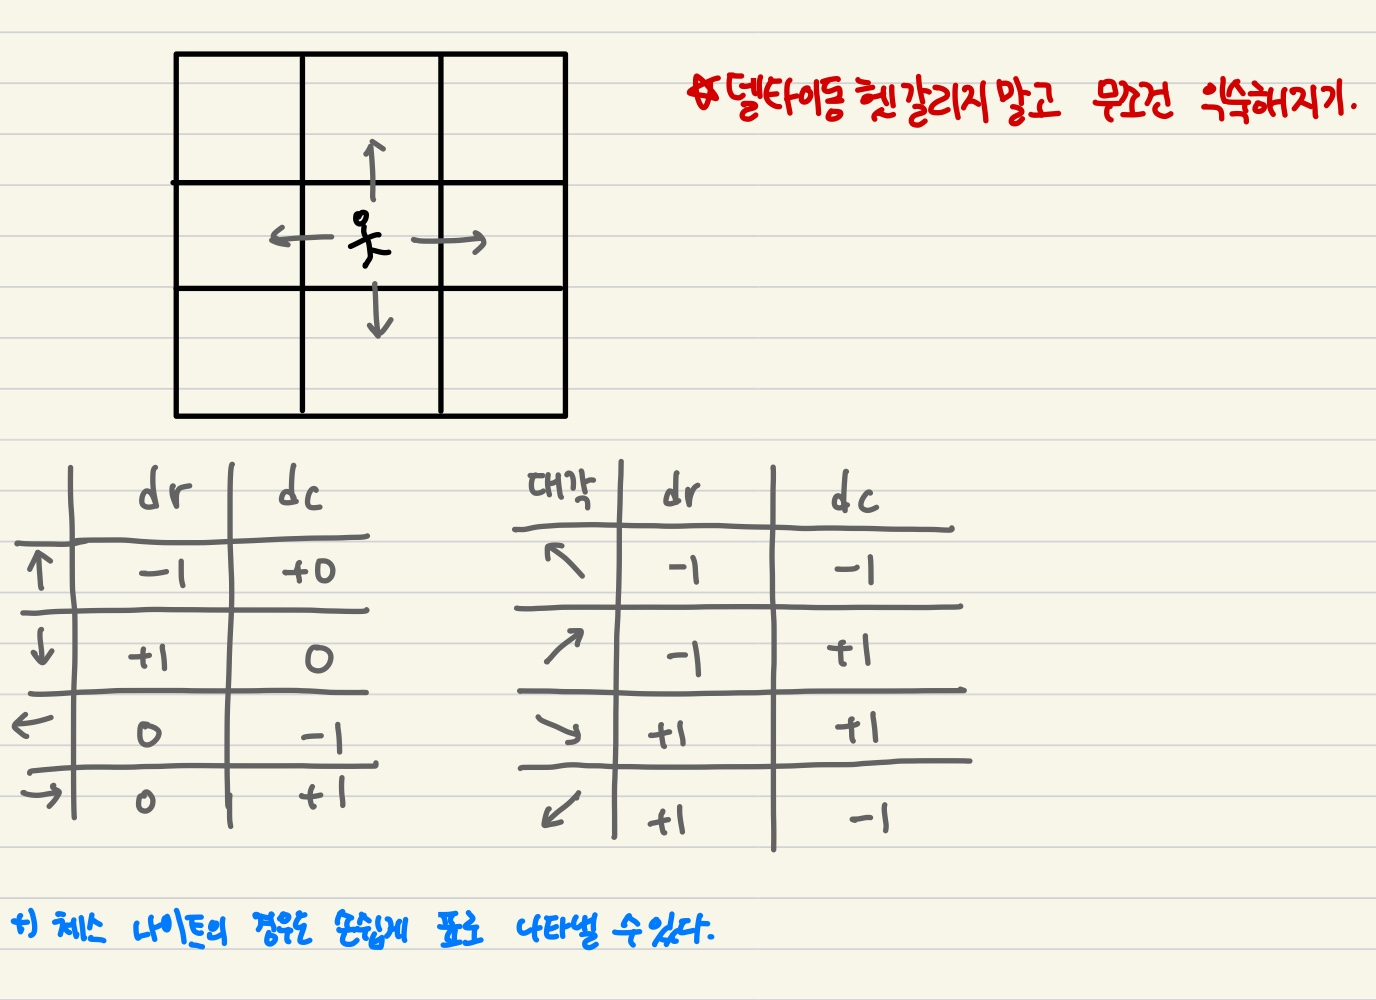 ☆ 델타이동 헷갈리지 말고 무조건 익숙해지기.
dr dc
↑ -1 +0
↓ +1 0
← 0 -1
→ 0 +1
대각 dr dc
↖ -1 -1
↗ -1 +1
↘ +1 +1
↙ +1 -1
+) 체스 나이트의 경우도 손쉽게 표로 나타낼 수 있다.